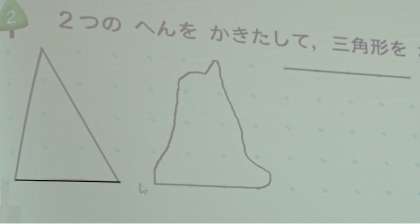 2
2つの へんを かきたして, 三角形を